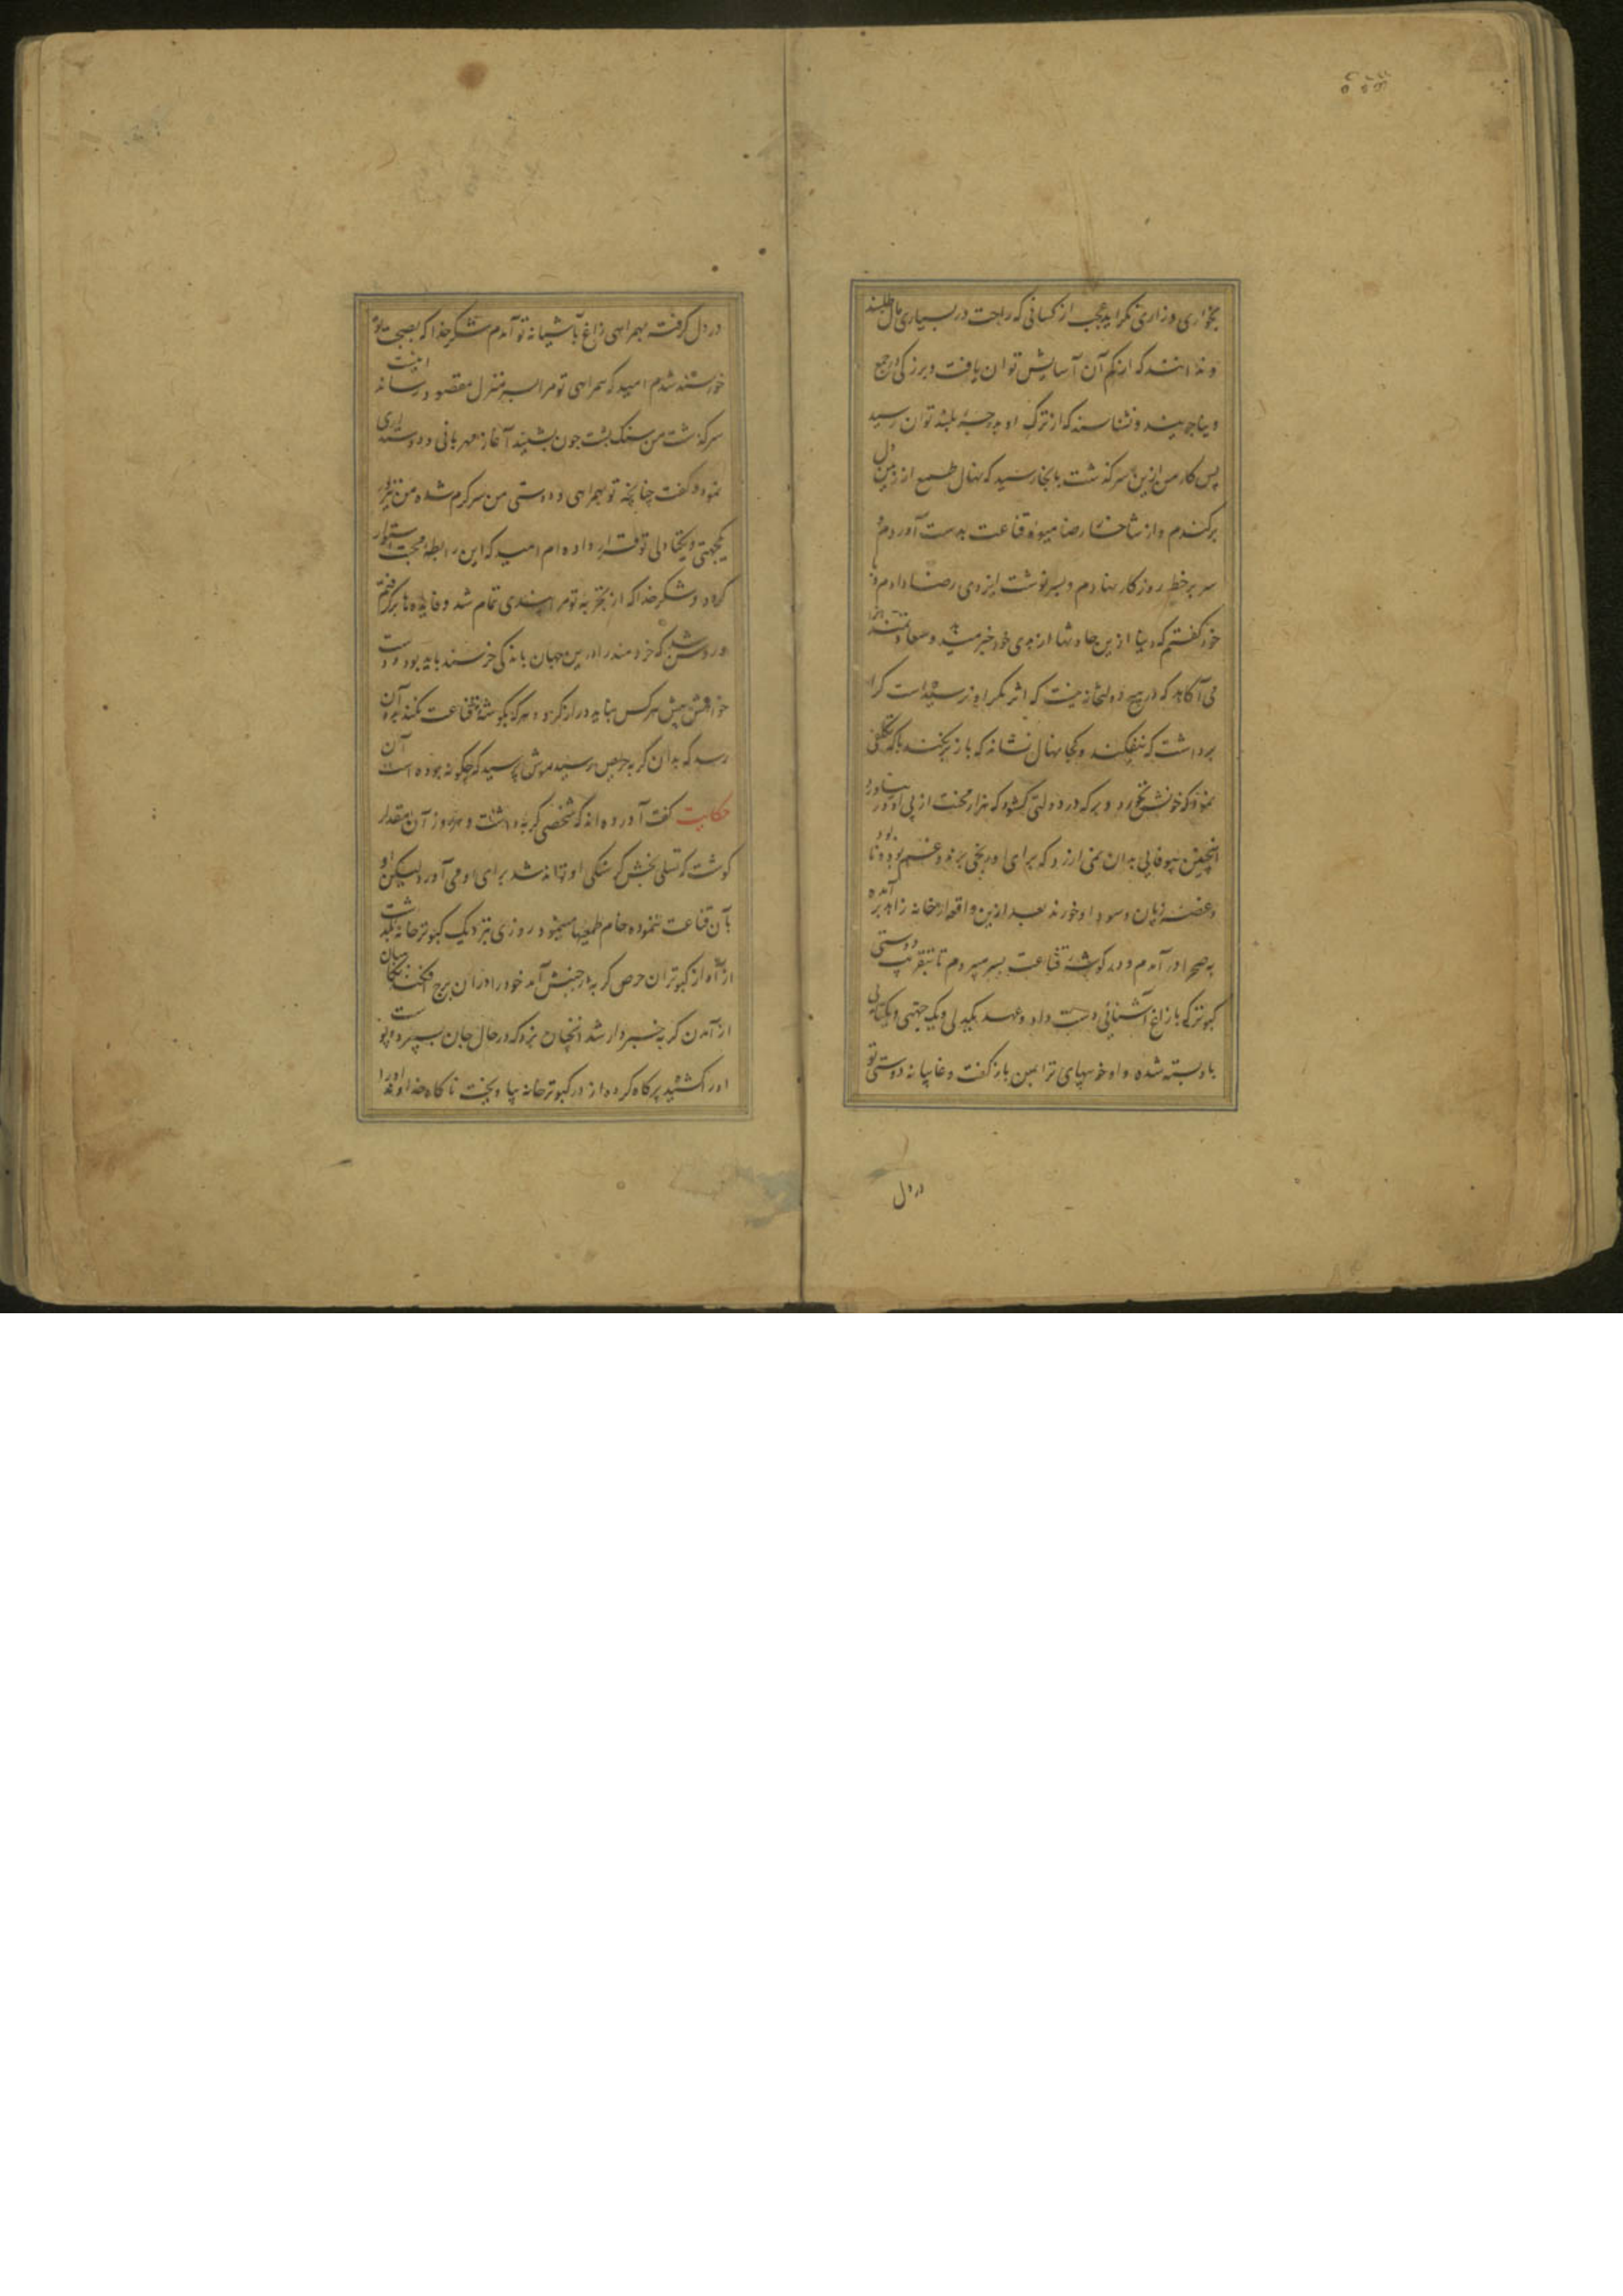 بخواری و زاری نکراید عجب از کسانی که راحت در بسیاری مال طلبند
و ندانند که از کم آن آسایش توان یافت و بزرکی در جمع
دنیا جویند و نشناسند که از ترک او بدرجۀ بلند توان رسید
پس کار من ازین سرکذشت بانجا رسید که نهال طمع از زمین دل
برکندم و از شاخسار رضا میوۀ قناعت بدست آوردم و
سر بر خط روزکار نهادم و بسرنوشت ایزدی رضا دادم و با
خود کفتم که دنیا ازین حادثها از بدی خود خبر میدهد و
می آکاهد که در هیچ دولتخانه نیست که اثر مکر او نرسیده است کرا
برداشت که نیفکند و کجا نهال نشاند که باز نکند با که تکلفی
نمود که خونش نخورد و بر که در دولتی کشود که هزار محنت از پی او در نیاورد
اینچنین بیوفایی بدان نمی ارزد که برای او رنجی برند و غم بود و نابود
و غصۀ زیان و سود او خورند بعد ازین واقعه از خانه زاهد بره آمده
به صحرا در آمدم و در کوشۀ قناعت بسر میبردم تا بتقریب دوستی
کبوتر که با زاغ آشنائی دست داد و عهد یکدلی و یک جهتی و یکتادلی
باو بسته شده و او خوبیهای ترا بمن باز کفت و غایبانه دوستی تو
در دل
در دل کرفته بهمراهی زاغ بآشیانۀ تو آمدم شکر خدا که بصحبت تو
خورسند شدم امید که همراهی تو مرا بسر منزل مقصود رساند اینست
سرکذشت من سنک پشت چون بشنید آغاز مهربانی و دوستداری
نمود و کفت چنانچه تو بهمراهی و دوستی من سرکرم شده من نیز در
یکجهتی و یکتادلی تو قرار داده ام امید که این رابطۀ محبت استوار
کردد و شکر خدا که از تجربه تو مرا پندی تمام شد و فایده ها برکرفتم
و روشن شد که خردمند را درین جهان باندکی خرسند باید بود و دست
خواهش پیش هر کس نباید دراز کرد و هر که بکوشۀ قناعت نکند بدو آن
رسد که بدان کربه حریص رسید موش پرسید که چکونه بوده است آن
حکایت کفت آورده اند که شخصی کربه داشت و هر روز آن مقدار
کوشت که تسلی بخش کرسنکی او تواند شد برای او می آورد لیکن او
بآن قناعت ننموده خام طمعیها مینمود روزی نزدیک کبوترخانه بکذشت
از آواز کبوتران حرص کربه در جنبش آمد خود را دران برج افکند نکاهبان
از آمدن کربه خبردار شد آنچنان بزد که در حال جان بسپرد و پوست
او را کشیده پر کاه کرده از در کبوترخانه بیاویخت ناکاه خداوند او را